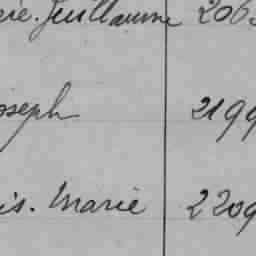 ere. Guillaume 2063
oseph 2199
is. Marie 2209